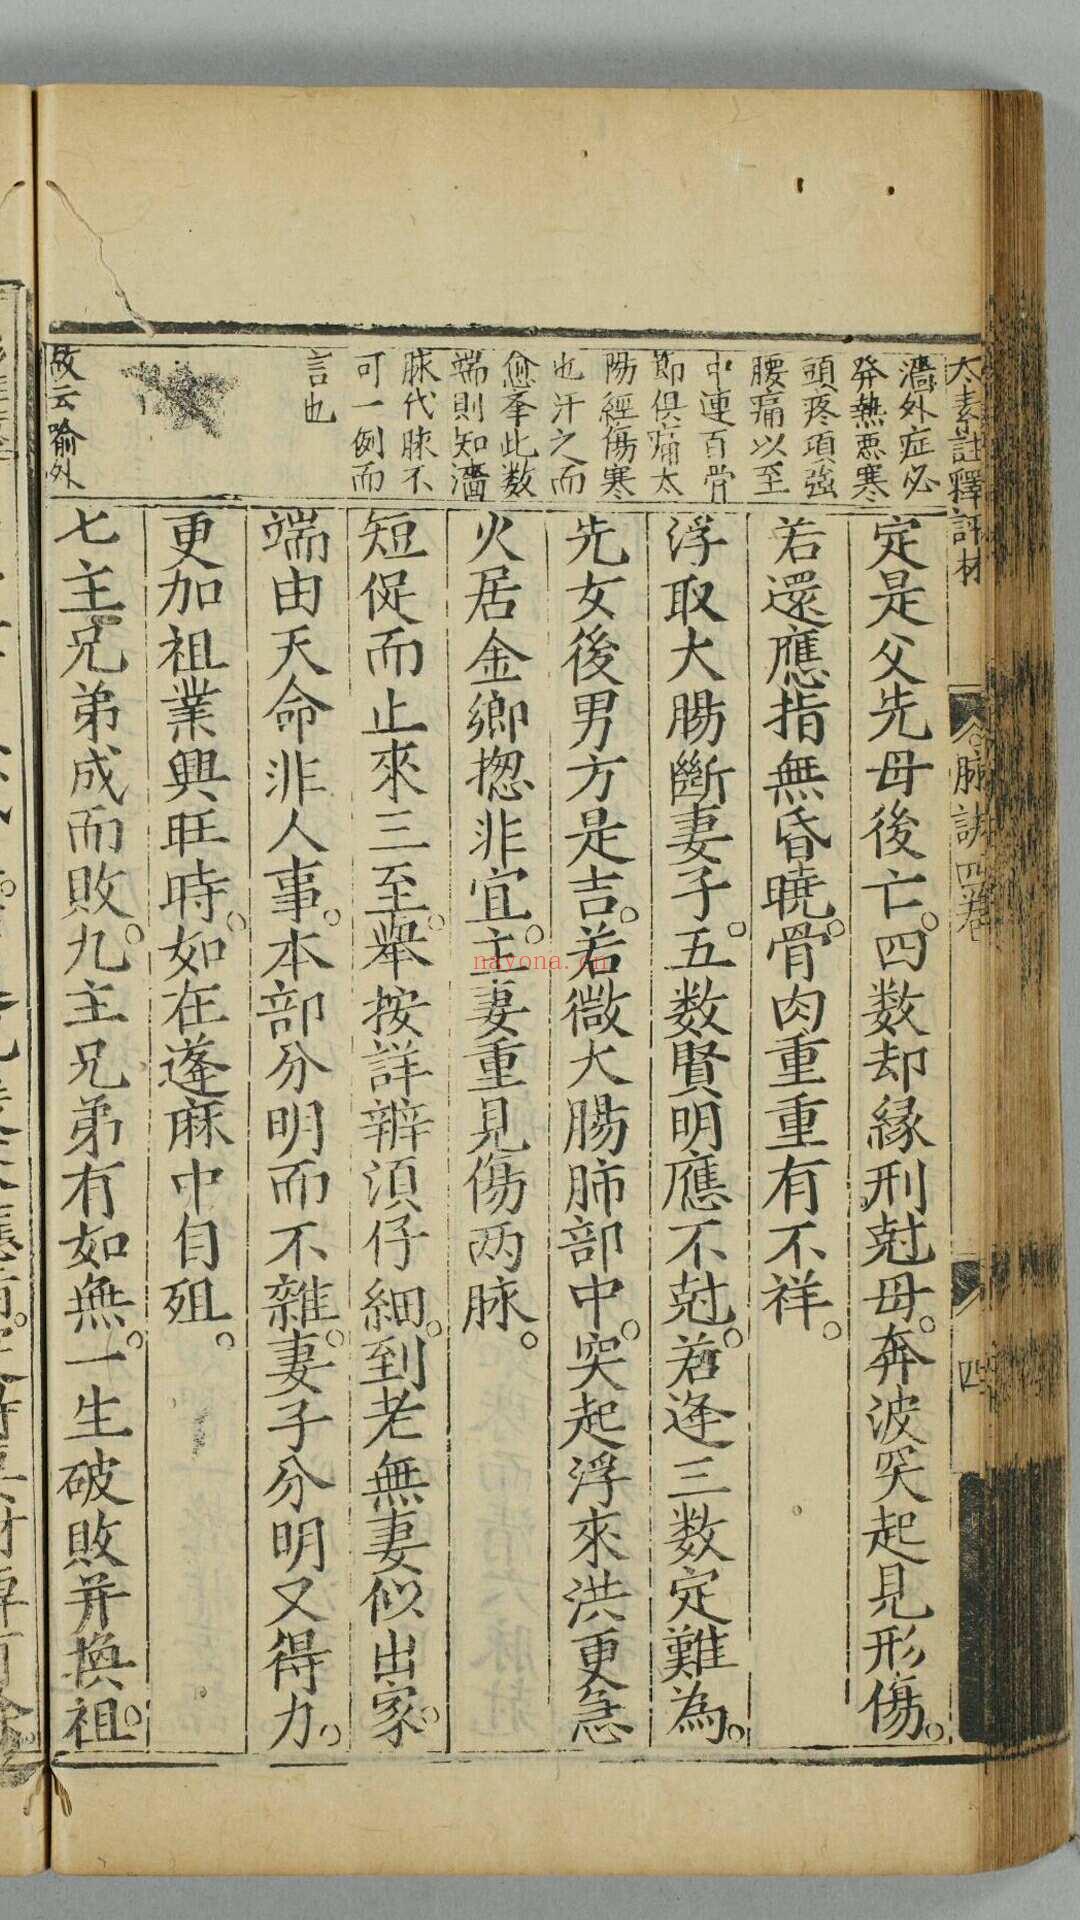 太素註釋評林
脉訣四卷
四
濇外症必
發熱惡寒
頭疼項強
腰痛以至
中連百骨
節俱痛太
陽經傷寒
也汗之而
愈峯此数
端則知濇
脉代脉不
可一例而
言也
故云喻外
定是父先母後亡。四数却縁刑尅母。奔波突起見形傷。
若還應指無昏曉。骨肉重重有不祥。
浮取大腸斷妻子。五数賢明應不尅。若逢三数定難為。
先女後男方是吉。若微大腸肺部中。突起浮來洪更急
火居金鄉揔非宜。主妻重見傷两脉。
短促而止來三至。舉按詳辨湏仔細。到老無妻似出家。
端由天命非人事。本部分明而不雜。妻子分明又得力。
更加祖業興旺時。如在蓬麻中自殂。
七主兄弟成而敗。九主兄弟有如無。一生破敗并換祖。
nayona.cn